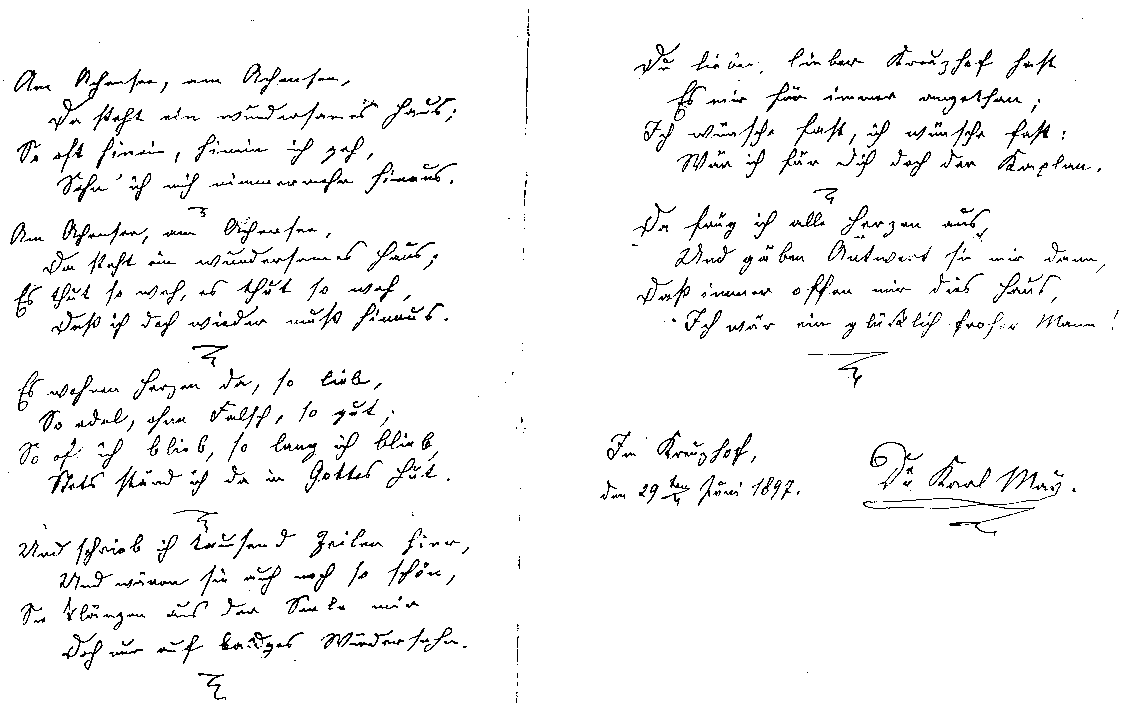 Am Achensee, am Achensee,
Da steht ein wundersames Haus;
So oft hinein, hinein ich geh,
Sehn' ich mich nimmermehr hinaus.
Am Achensee, am Achensee,
Da steht ein wundersames Haus;
Es thut so weh, es thut so weh,
Daß ich doch wieder muß hinaus.
Es wohnen Herzen da, so lieb,
So edel, ohne Falsch, so gut;
So oft ich blieb, so lang ich blieb,
Stets stand ich da in Gottes Hut.
Und schrieb ich tausend Zeilen hier,
Und wären sie auch noch so schön,
Sie klängen aus der Seele mir
Doch nur auf baldges Wiedersehn.
Du lieber, lieber Kreuzhof hast
Es mir für immer angethan;
Ich wünsche fast, ich wünsche fast:
Wär ich für dich doch der Kaplan.
Da fräng ich alle Herzen aus,
Und gäben Antwort sie mir dann,
Daß immer offen mir dies Haus,
Ich wär ein glücklich froher Mann!
Im Kreuzhof,
den 29ten Juni 1897.
Dr. Karl May.